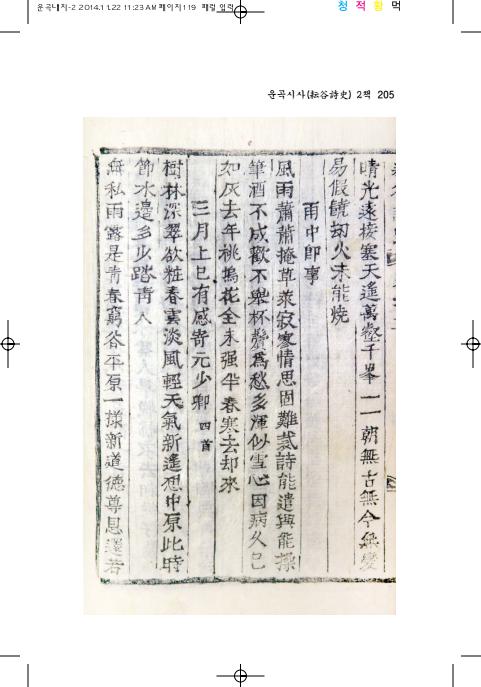 운곡내지-2 2014.11.22 11:23 AM 페이지119 패럴 입력
청 적 황 먹
운곡시사(耘谷詩史) 2책 205
晴光遠接塞天遙萬壑千峯一一朝無古無今無變
易假饒劫火未能燒
雨中即事
風雨蕭蕭掩草萊寂寥情思固難裁詩能遣興能操
筆酒不成歡不擧杯鬢爲愁多渾似雪心因病久已
如灰去年桃塢花全未强半春寒去却來
三月上巳有感寄元少卿 四首
樹林深翠欲粧春雲淡風輕天氣新遙想中原此時
節水邊多少踏靑人
無私雨露是靑春窮谷平原一樣新道德尊恩還若